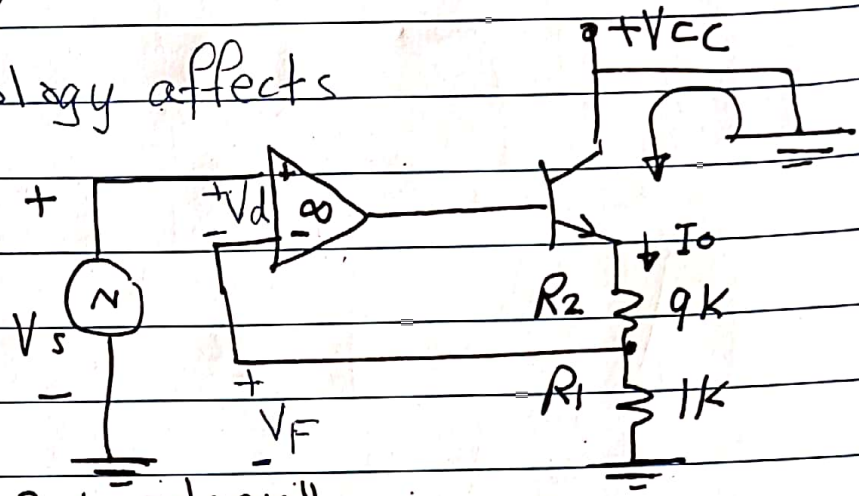 +Vcc
ology affects
+ +Vd + ∞
- -
Io
Vs ~ R2 9K
-
+ R1 1K
VF
-